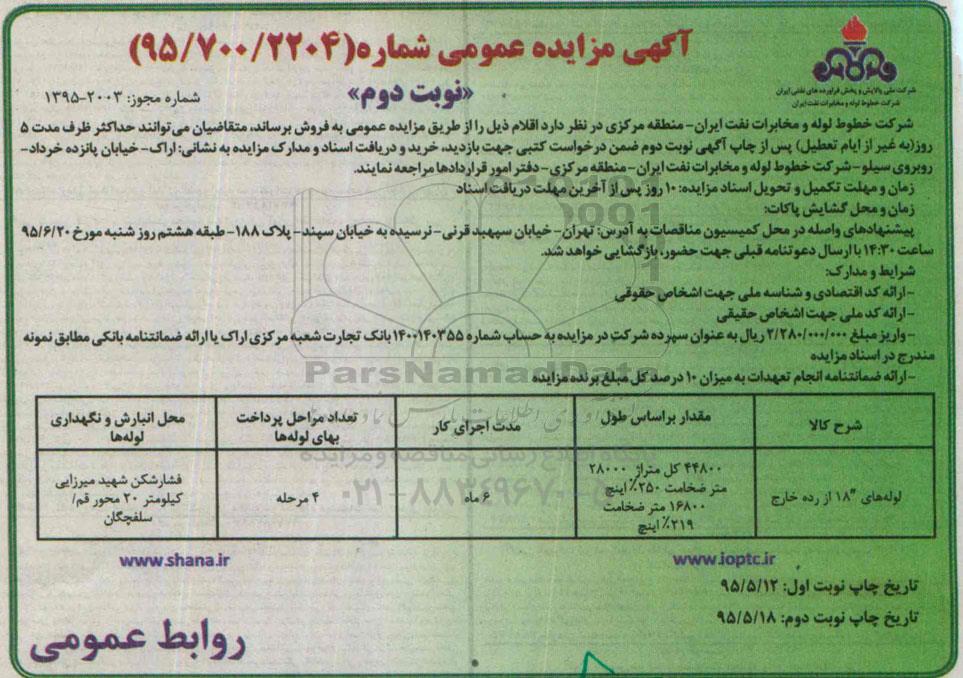 آگهی مزایده عمومی شماره(۹۵/۷۰۰/۲۲۰۴)
شرکت ملی پالایش و پخش فرآورده های نفتی ایران
شرکت خطوط لوله و مخابرات نفت ایران
«نوبت دوم»
شماره مجوز: ۲۰۰۳-۱۳۹۵
شرکت خطوط لوله و مخابرات نفت ایران- منطقه مرکزی در نظر دارد اقلام ذیل را از طریق مزایده عمومی به فروش برساند، متقاضیان می‌توانند حداکثر ظرف مدت ۵
روز(به غیر از ایام تعطیل) پس از چاپ آگهی نوبت دوم ضمن درخواست کتبی جهت بازدید، خرید و دریافت اسناد و مدارک مزایده به نشانی: اراک- خیابان پانزده خرداد-
روبروی سیلو- شرکت خطوط لوله و مخابرات نفت ایران- منطقه مرکزی- دفتر امور قراردادها مراجعه نمایند.
زمان و مهلت تکمیل و تحویل اسناد مزایده: ۱۰ روز پس از آخرین مهلت دریافت اسناد
زمان و محل گشایش پاکات:
پیشنهادهای واصله در محل کمیسیون مناقصات به آدرس: تهران- خیابان سپهبد قرنی- نرسیده به خیابان سپند- پلاک ۱۸۸- طبقه هشتم روز شنبه مورخ ۹۵/۶/۲۰
ساعت ۱۴:۳۰ با ارسال دعوتنامه قبلی جهت حضور، بازگشایی خواهد شد.
شرایط و مدارک:
-ارائه کد اقتصادی و شناسه ملی جهت اشخاص حقوقی
-ارائه کد ملی جهت اشخاص حقیقی
-واریز مبلغ ۲/۲۸۰/۰۰۰/۰۰۰ ریال به عنوان سپرده شرکت در مزایده به حساب شماره ۱۴۰۰۱۴۰۳۵۵ بانک تجارت شعبه مرکزی اراک یا ارائه ضمانتنامه بانکی مطابق نمونه
مندرج در اسناد مزایده
-ارائه ضمانتنامه انجام تعهدات به میزان ۱۰ درصد کل مبلغ برنده مزایده
ParsNamadData
شرح کالا
مقدار براساس طول
مدت اجرای کار
تعداد مراحل پرداخت
بهای لوله‌ها
محل انبارش و نگهداری
لوله‌ها
لوله‌های ۱۸" از رده خارج
۴۴۸۰۰ کل متراژ ۲۸۰۰۰
متر ضخامت ۲۵۰٪ اینچ
۱۶۸۰۰ متر ضخامت
۲۱۹٪ اینچ
۶ ماه
۴ مرحله
فشارشکن شهید میرزایی
کیلومتر ۲۰ محور قم/
سلفچگان
پایگاه اطلاع رسانی مناقصه و مزایده
۰۲۱-۸۸۳۴۹۶۷۰-۵
www.ioptc.ir
www.shana.ir
تاریخ چاپ نوبت اول: ۹۵/۵/۱۲
تاریخ چاپ نوبت دوم: ۹۵/۵/۱۸
روابط عمومی